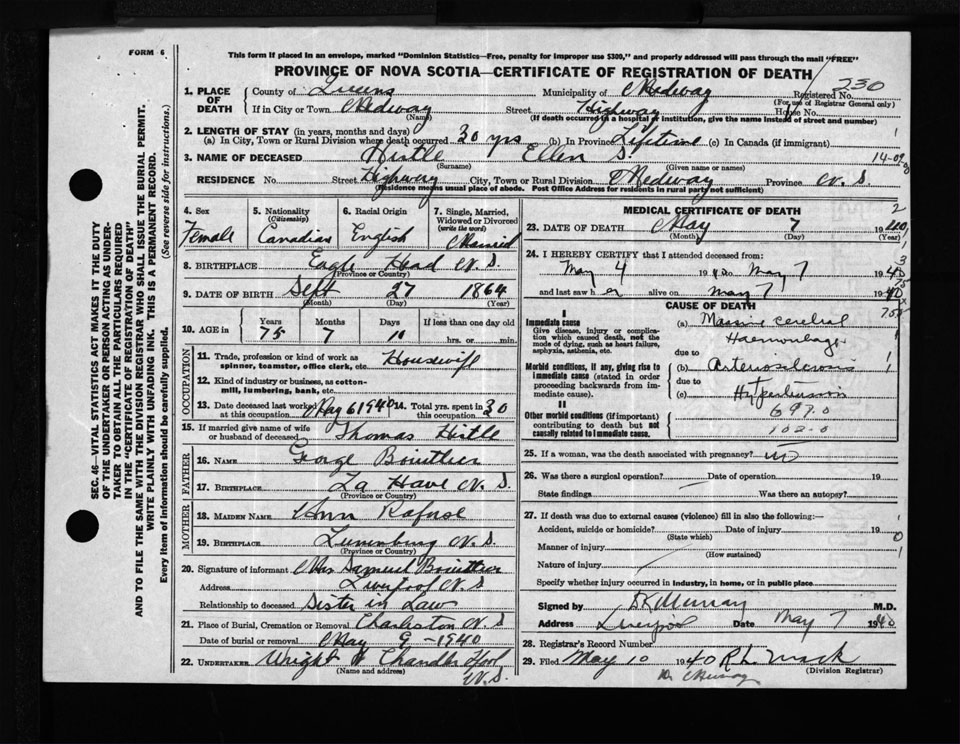 FORM 6
This form if placed in an envelope, marked "Dominion Statistics—Free, penalty for improper use $300," and properly addressed will pass through the mail "FREE"
PROVINCE OF NOVA SCOTIA—CERTIFICATE OF REGISTRATION OF DEATH
SEC. 46—VITAL STATISTICS ACT MAKES IT THE DUTY OF THE UNDERTAKER OR PERSON ACTING AS UNDERTAKER TO OBTAIN ALL THE PARTICULARS REQUIRED IN THE "CERTIFICATE OF REGISTRATION OF DEATH" AND TO FILE THE SAME WITH THE DIVISION REGISTRAR WHO SHALL ISSUE THE BURIAL PERMIT.
WRITE PLAINLY WITH UNFADING INK. THIS IS A PERMANENT RECORD.
Every item of information should be carefully supplied. (See reverse side for instructions.)
1. PLACE OF DEATH County of Queens Municipality of Medway Registered No. 230
(For use of Registrar General only)
If in City or Town Medway Street Highway House No.
(Name) (If death occurred in a hospital or institution, give the name instead of street and number)
2. LENGTH OF STAY (in years, months and days)
(a) In City, Town or Rural Division where death occurred 30 yrs (b) In Province Lifetime (c) In Canada (if immigrant)
3. NAME OF DECEASED Hirtle Ellen S.
(Surname) (Given name or names)
RESIDENCE No. Street Highway City, Town or Rural Division Medway Province N. S.
(Residence means usual place of abode. Post Office Address for residents in rural part not sufficient)
4. Sex Female
5. Nationality (Citizenship) Canadian
6. Racial Origin English
7. Single, Married, Widowed or Divorced (write the word) Married
8. BIRTHPLACE Eagle Head N. S.
(Province or Country)
9. DATE OF BIRTH Sept 27 1864
(Month) (Day) (Year)
10. AGE in Years 75 Months 7 Days 10 If less than one day old hrs. or min.
OCCUPATION
11. Trade, profession or kind of work as spinner, teamster, office clerk, etc. Housewife
12. Kind of industry or business, as cotton-mill, lumbering, bank, etc.
13. Date deceased last worked at this occupation May 6 1940 14. Total yrs. spent in this occupation 30
15. If married give name of wife or husband of deceased Thomas Hirtle
FATHER
16. NAME George Boutlier
17. BIRTHPLACE La Have N. S.
(Province or Country)
MOTHER
18. MAIDEN NAME Ann Rafuse
19. BIRTHPLACE Lunenburg N. S.
(Province or Country)
20. Signature of informant Mrs Samuel Boutlier
Address Liverpool N. S
Relationship to deceased Sister in Law
21. Place of Burial, Cremation or Removal Charleston N. S
Date of burial or removal May 9 - 1940
22. UNDERTAKER Wright Chandler
(Name and address) N. S.
MEDICAL CERTIFICATE OF DEATH
23. DATE OF DEATH May 7 1940
(Month) (Day) (Year)
24. I HEREBY CERTIFY that I attended deceased from:
May 4 1940 to May 7 1940
and last saw her alive on May 7 1940
CAUSE OF DEATH
I
Immediate cause
Give disease, injury or complication which caused death, not the mode of dying, such as heart failure, asphyxia, asthenia, etc.
(a) Massive cerebral Haemorrhage
due to
Morbid conditions, if any, giving rise to immediate cause (stated in order proceeding backwards from immediate cause).
(b) Arteriosclerosis
due to
(c) Hypertension
II
Other morbid conditions (if important) contributing to death but not causally related to immediate cause.
697.0
102.0
25. If a woman, was the death associated with pregnancy? no
26. Was there a surgical operation? Date of operation 19
State findings Was there an autopsy?
27. If death was due to external causes (violence) fill in also the following:—
Accident, suicide or homicide? Date of injury 19
(State which)
Manner of injury
(How sustained)
Nature of injury
Specify whether injury occurred in industry, in home, or in public place
Signed by Murray M.D.
Address Liverpool Date May 7 1940
28. Registrar's Record Number
29. Filed May 10 1940 R L Mack
(Division Registrar)
Dr Murray